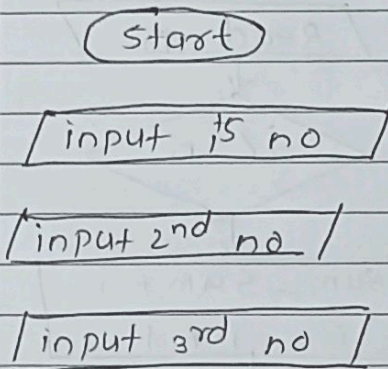 start
input 1st no
input 2nd no
input 3rd no